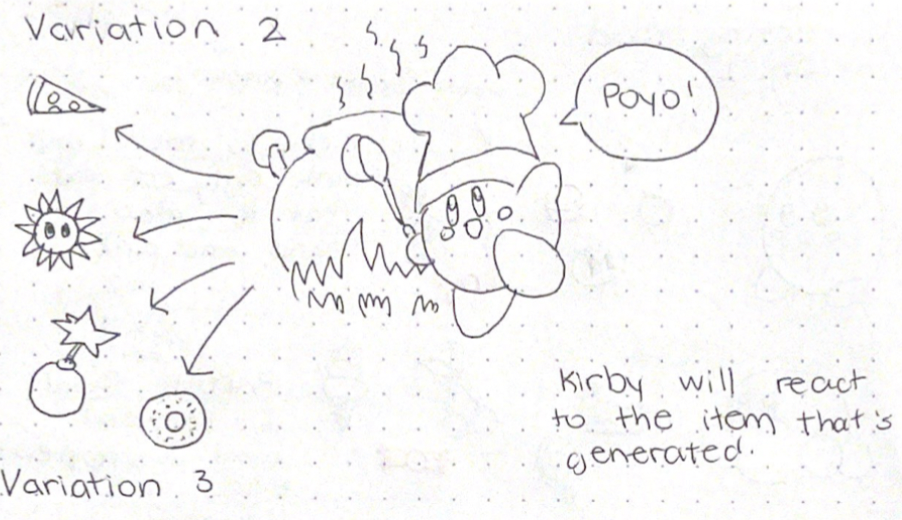 Variation 2
Poyo!
Kirby will react
to the item that's
generated.
Variation 3